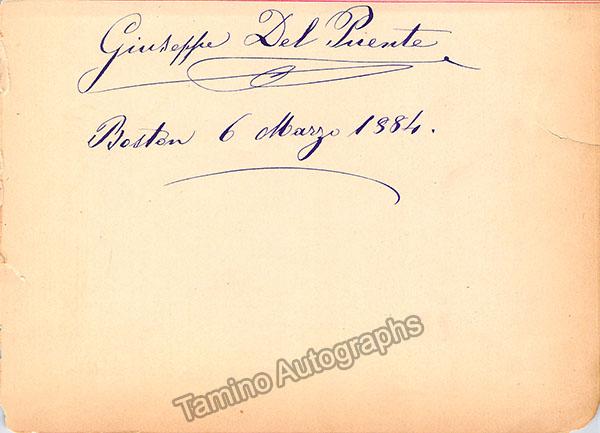 Giuseppe Del Puente
Boston 6 Marzo 1884.
Tamino Autographs